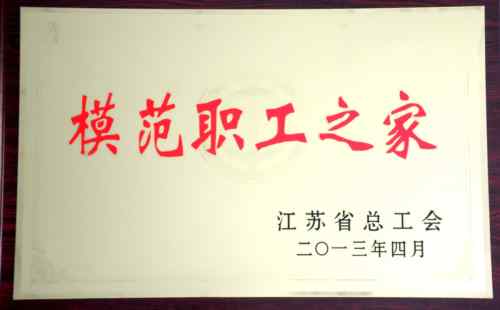 模范职工之家
江苏省总工会
二〇一三年四月